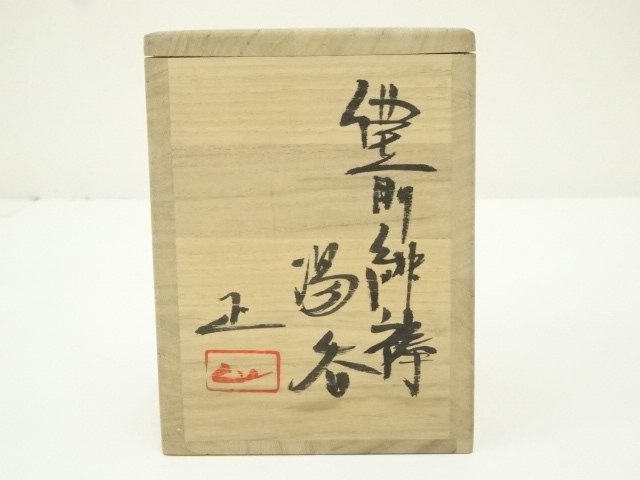 備前緋襷
湯呑
正